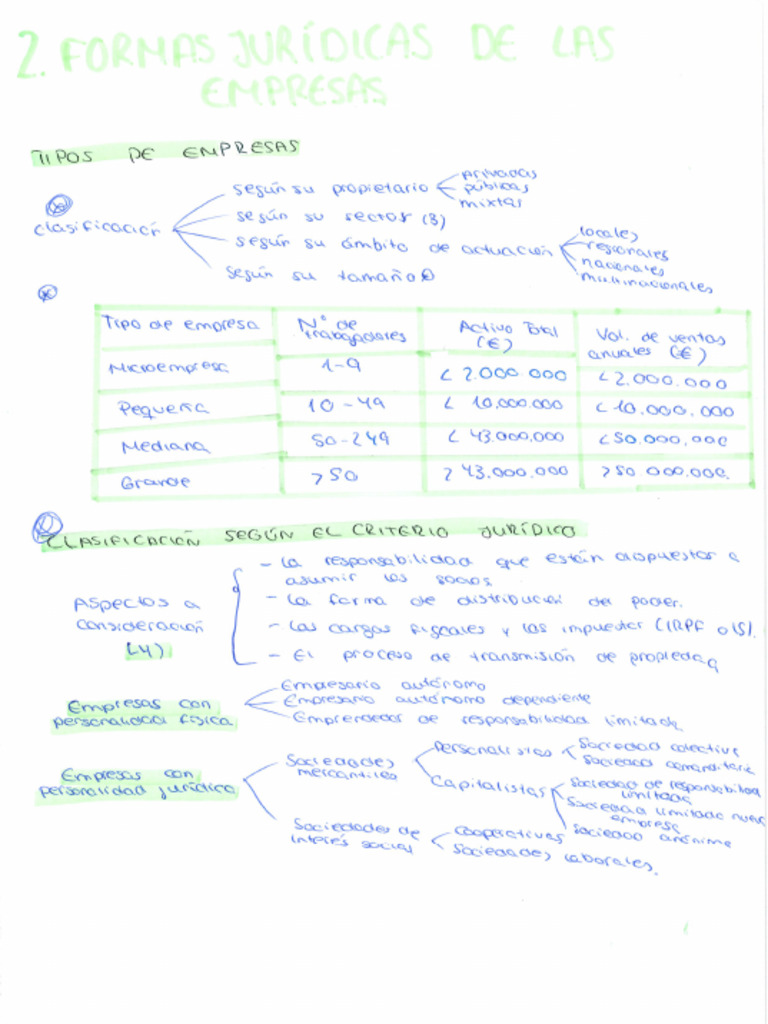 2. FORMAS JURÍDICAS DE LAS
EMPRESAS
TIPOS DE EMPRESAS
clasificación
según su propietario
privadas
públicas
mixtas
según su sector (3)
según su ámbito de actuación
locales
regionales
nacionales
multinacionales
según su tamaño
Tipo de empresa
Nº de trabajadores
Activo Total (€)
Vol. de ventas anuales (€)
Microempresa
1-9
< 2.000.000
< 2.000.000
Pequeña
10-49
< 10.000.000
< 10.000.000
Mediana
50-249
< 43.000.000
< 50.000.000
Grande
> 50
> 43.000.000
> 50.000.000.
CLASIFICACIÓN SEGÚN EL CRITERIO JURÍDICO
Aspectos a
consideración
(4)
- La responsabilidad que están dispuestos a
asumir los socios.
- La forma de distribución del poder.
- Las cargas fiscales y los impuestos (IRPF o IS).
- El proceso de transmisión de propiedad
Empresas con
personalidad física
Empresario autónomo
Empresario autónomo dependiente
Emprendedor de responsabilidad limitada
Empresas con
personalidad jurídica
Sociedades
mercantiles
Personalistas
Sociedad colectiva
Sociedad comanditaria
Capitalistas
Sociedad de responsabilidad
limitada
Sociedad limitada nueva
empresa
Sociedad anónima
Sociedades de
interés social
Cooperativas
Sociedades laborales.
1